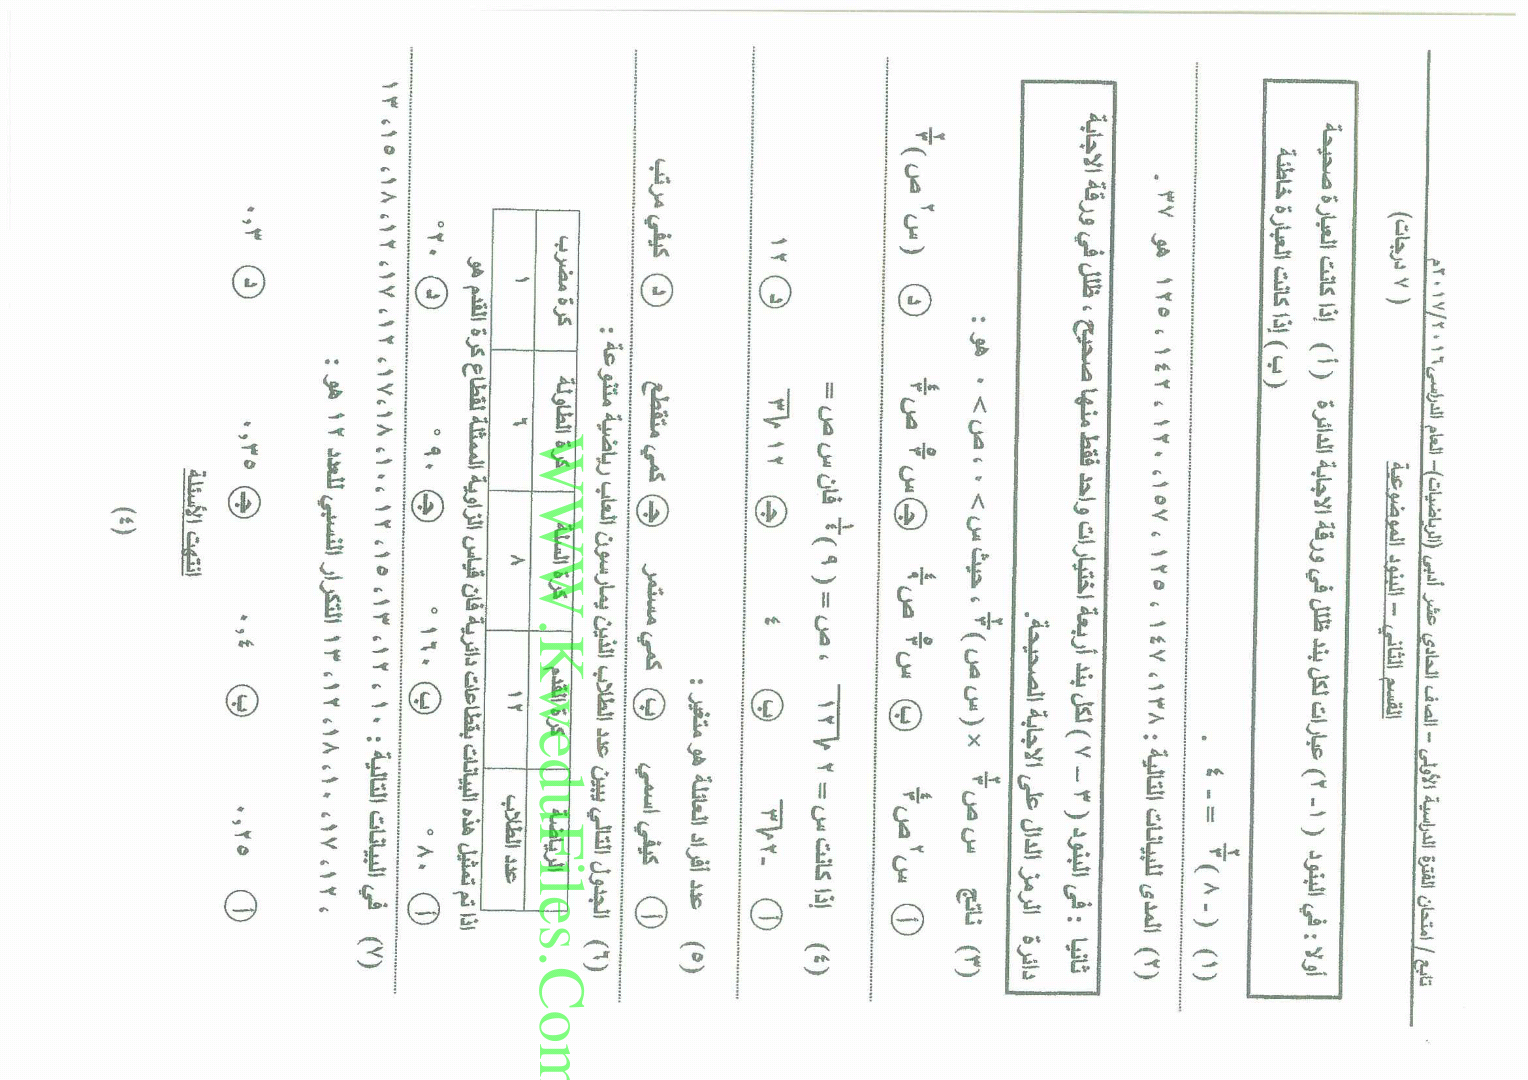 تابع / امتحان الفترة الدراسية الأولى – الصف الحادي عشر أدبي (الرياضيات) – العام الدراسي ٢٠١٦/٢٠١٧م
القسم الثاني – البنود الموضوعية ( ٧ درجات)
أولا : في البنود ( ١ - ٢) عبارات لكل بند ظلل في ورقة الاجابة الدائرة ( أ ) إذا كانت العبارة صحيحة
( ب ) إذا كانت العبارة خاطئة
(١) ( - ٨ )^(٢/٣) = - ٤ .
(٢) المدى للبيانات التالية : ١٣٨ ، ١٤٧ ، ١٢٥ ، ١٥٧ ، ١٢٠ ، ١٤٢ ، ١٢٥ هو ٣٧ .
ثانيا : في البنود ( ٣ – ٧ ) لكل بند أربعة اختيارات واحد فقط منها صحيح ، ظلل في ورقة الاجابة
دائرة الرمز الدال على الاجابة الصحيحة.
(٣) ناتج س ص^(٢/٣) × ( س ص )^(٢/٣) ، حيث س > ٠ ، ص > ٠ هو :
أ س^٢ ص^(٤/٣) ب س^(٥/٣) ص^(٤/٩) ج س^(٥/٣) ص^(٤/٣) د ( س^٢ ص )^(٢/٣)
(٤) إذا كانت س = ٢ √١٢ ، ص = ( ٩ )^(١/٤) فان س ص =
أ -٢√٣ ب ٤ ج ١٢ √٣ د ١٢
(٥) عدد أفراد العائلة هو متغير :
أ كيفي اسمي ب كمي مستمر ج كمي متقطع د كيفي مرتب
(٦) الجدول التالي يبين عدد الطلاب الذين يمارسون العاب رياضية متنوعة :
الرياضة كرة القدم كرة السلة كرة الطاولة كرة مضرب
عدد الطلاب ١٢ ٨ ٦ ١
اذا تم تمثيل هذه البيانات بقطاعات دائرية فان قياس الزاوية الممثلة لقطاع كرة القدم هو
أ ٨٠ ° ب ١٦٠ ° ج ٩٠ ° د ٢٠ °
(٧) في البيانات التالية : ١٠ ، ١٢ ، ١٣ ، ١٥ ، ١٢ ، ١٠ ، ١٨ ، ١٧ ، ١٢ ، ١٧ ، ١٢ ، ١٨ ، ١٥ ، ١٣
، ١٢ ، ١٧ ، ١٠ ، ١٨ ، ١٢ ، ١٣ التكرار النسبي للعدد ١٢ هو :
أ ٠,٢٥ ب ٠,٤ ج ٠,٣٥ د ٠,٣
انتهت الأسئلة
(٤)
WWW.KweduFiles.Com